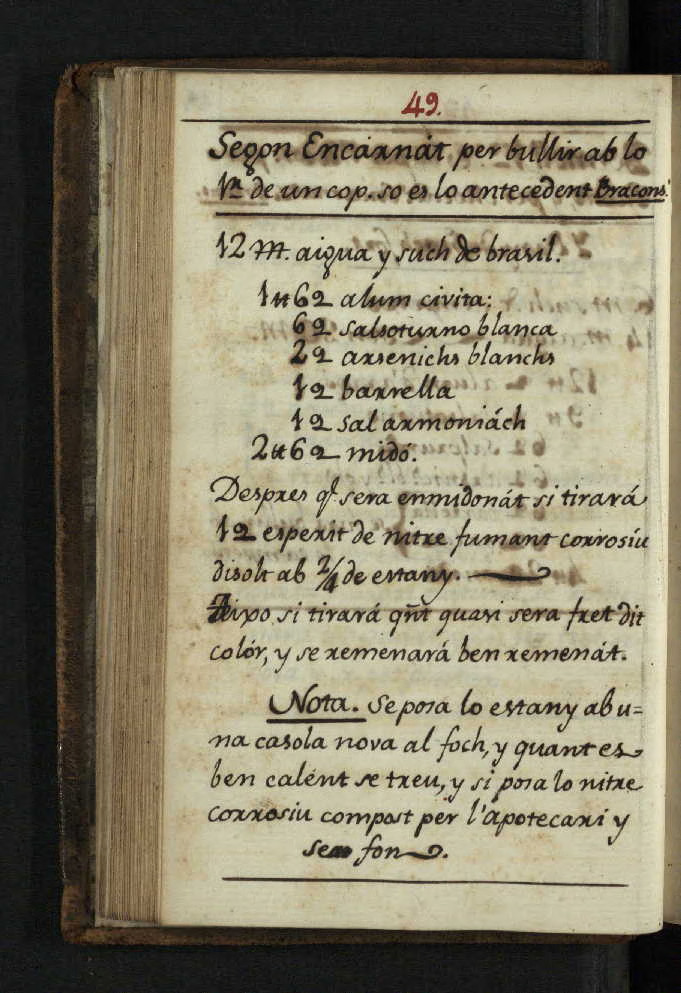 49.
Segon Encarnát per bullir ab lo
1r. de un cop. so es lo antecedent Bracons.
12 m. aigua y such de brasil.
1 tt 6 2 alum civita:
6 2 salsoturno blanca
2 2 arsenichs blanchs
1 2 barrella
1 2 sal armoniách
2 tt 6 2 midó.
Despres ql. sera enmidonát si tirará
1 2 esperit de nitre fumant corrosiu
disolt ab 2/4 de estany.
Aixo si tirará qñt quasi sera fret dit
colór, y se remenará ben remenát.
Nota. Se posa lo estany ab u=
na casola nova al foch, y quant es
ben calént se treu, y si posa lo nitre
corrosiu compost per l'apotecari y
se fon.